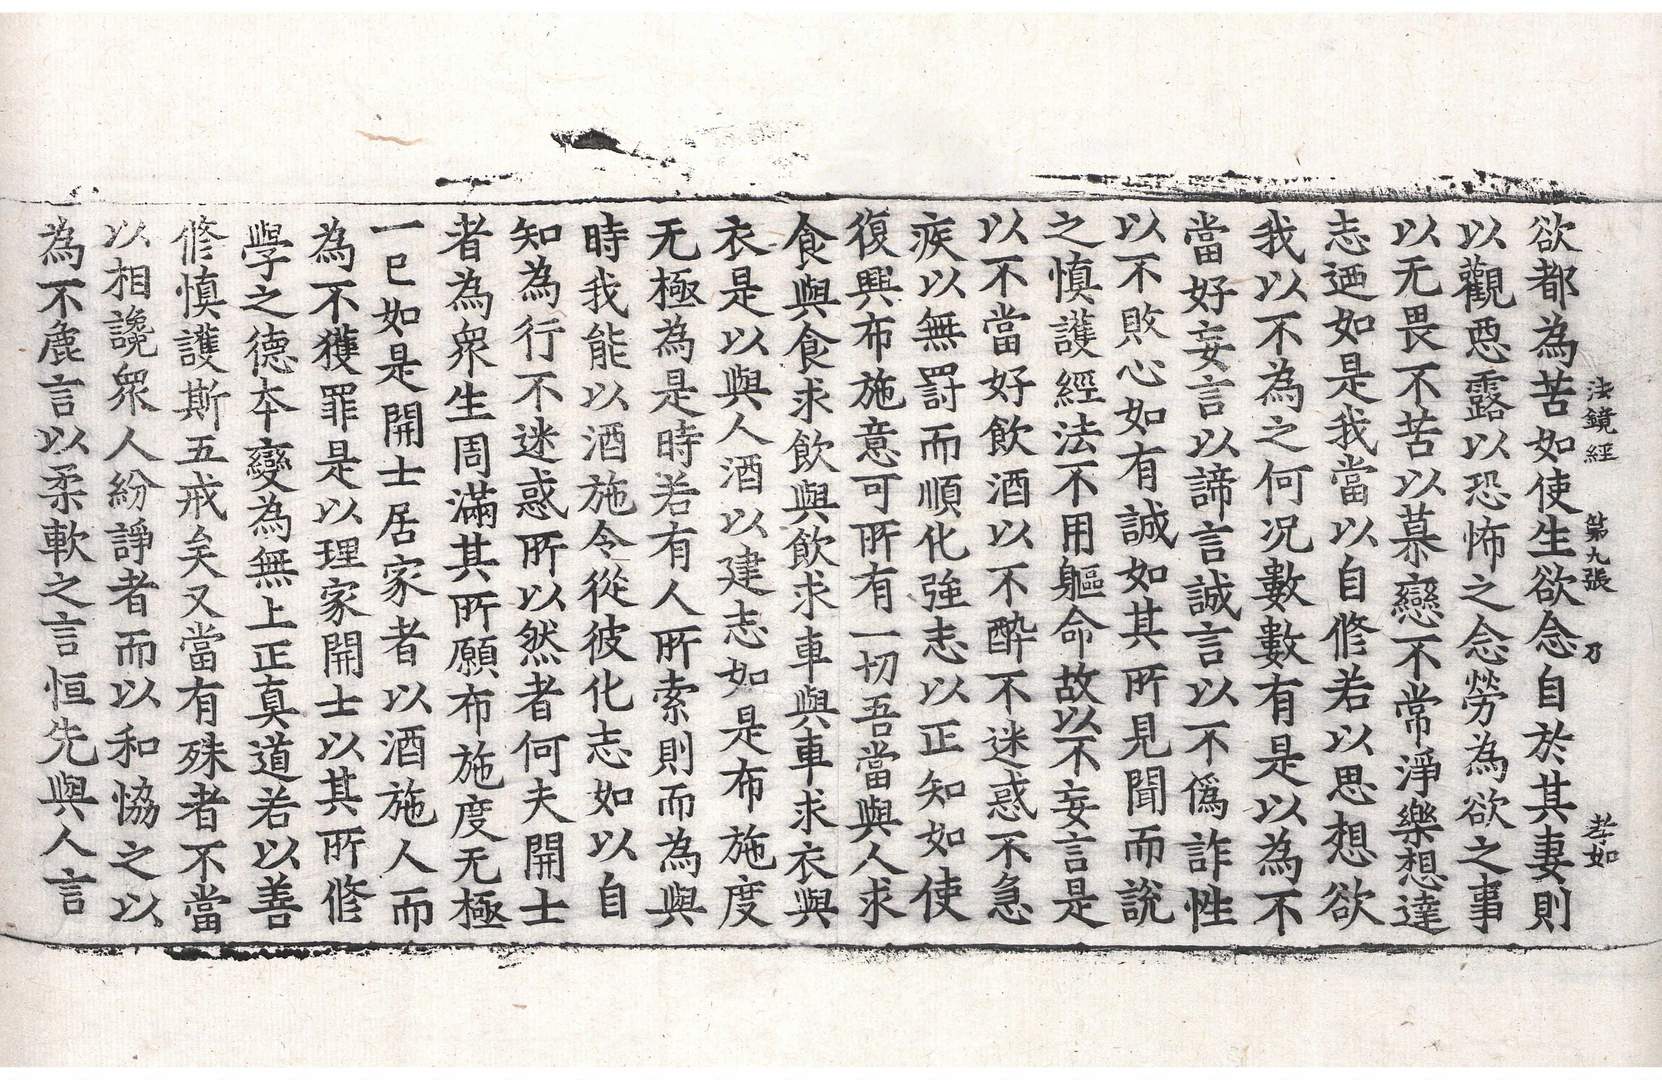 法鏡經 第九張 乃 孝如
欲都為苦如使生欲念自於其妻則
以觀惡露以恐怖之念勞為欲之事
以无畏不苦以慕戀不常淨樂想達
志迺如是我當以自修若以思想欲
我以不為之何况數數有是以為不
當好妄言以諦言誠言以不偽詐性
以不敗心如有誠如其所見聞而說
之慎護經法不用軀命故以不妄言是
以不當好飲酒以不醉不迷惑不急
疾以無罰而順化強志以正知如使
復興布施意可所有一切吾當與人求
食與食求飲與飲求車與車求衣與
衣是以與人酒以建志如是布施度
无極為是時若有人所索則而為與
時我能以酒施令從彼化志如以自
知為行不迷惑所以然者何夫開士
者為衆生周滿其所願布施度无極
一已如是開士居家者以酒施人而
為不獲罪是以理家開士以其所修
學之德本變為無上正真道若以善
修慎護斯五戒矣又當有殊者不當
以相讒衆人紛諍者而以和協之以
為不麁言以柔軟之言恒先與人言